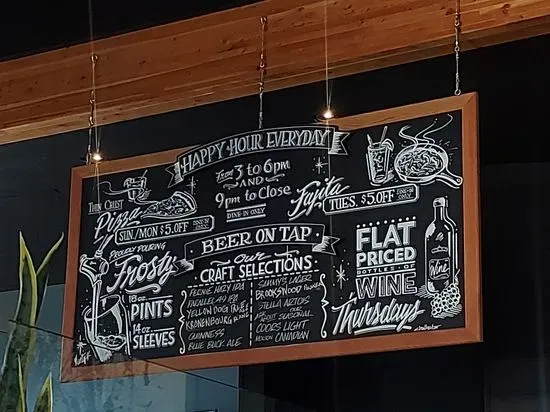 HAPPY HOUR EVERYDAY
From 3 to 6pm
AND
9pm to Close
DINE-IN ONLY
THIN CRUST
Pizza
SUN/MON $5.OFF DINE-IN ONLY
Fajita
TUES. $5.OFF DINE-IN ONLY
PROUDLY POURING
Frosty
18oz. PINTS
14oz. SLEEVES
BEER ON TAP
Our
CRAFT SELECTIONS
FERNIE HAZY IPA
PARALLEL 49 IPA
YELLOW DOG
KRONENBOURG BLANC
GUINNESS
BLUE BUCK ALE
LAGER
BROOKSWOOD
STELLA ARTOIS
SEASONAL
COORS LIGHT
MOLSON CANADIAN
FLAT
PRICED
BOTTLES OF
WINE
Thursdays
Wine